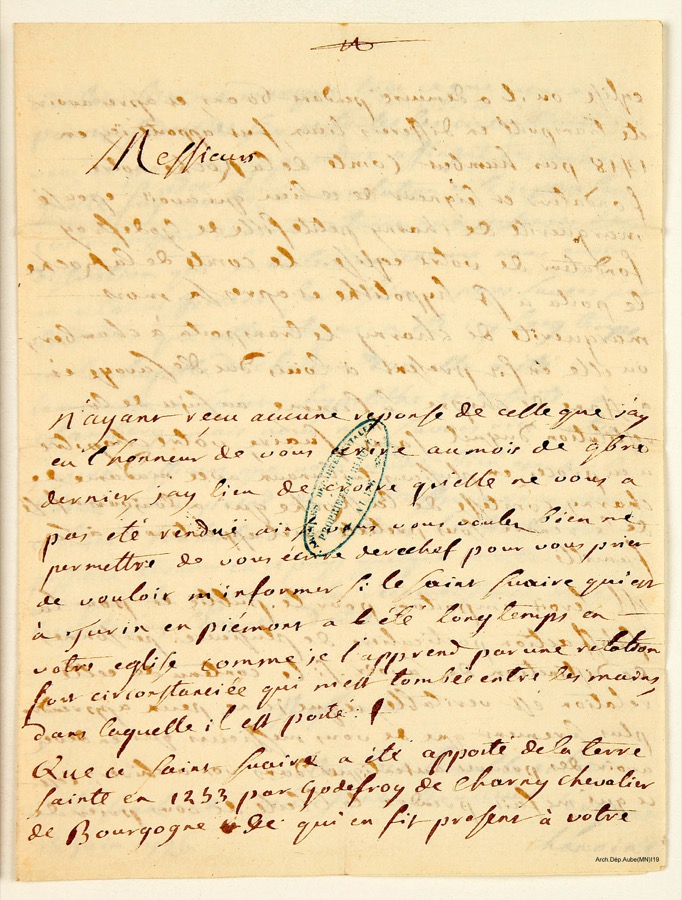 Messieurs
N'ayant reçu aucune reponse de celle que jay
eu l'honneur de vous écrire au mois de 9bre
dernier jay lieu de croire qu'elle ne vous a
pas été rendue vous voulez bien me
permettre de vous écrire derechef pour vous prier
de vouloir m'informer si le saint suaire qui est
à Turin en piémont a été longtemps en
votre eglise comme je l'apprend par une relation
fort circonstanciée qui m'est tombée entre les mains,
dans laquelle il est porté:
Que ce saint suaire a été apporté de la terre
sainte en 1253 par Godefroy de Charny chevalier
de Bourgogne qui en fit present à votre
Arch.Dép.Aube(MN)I19